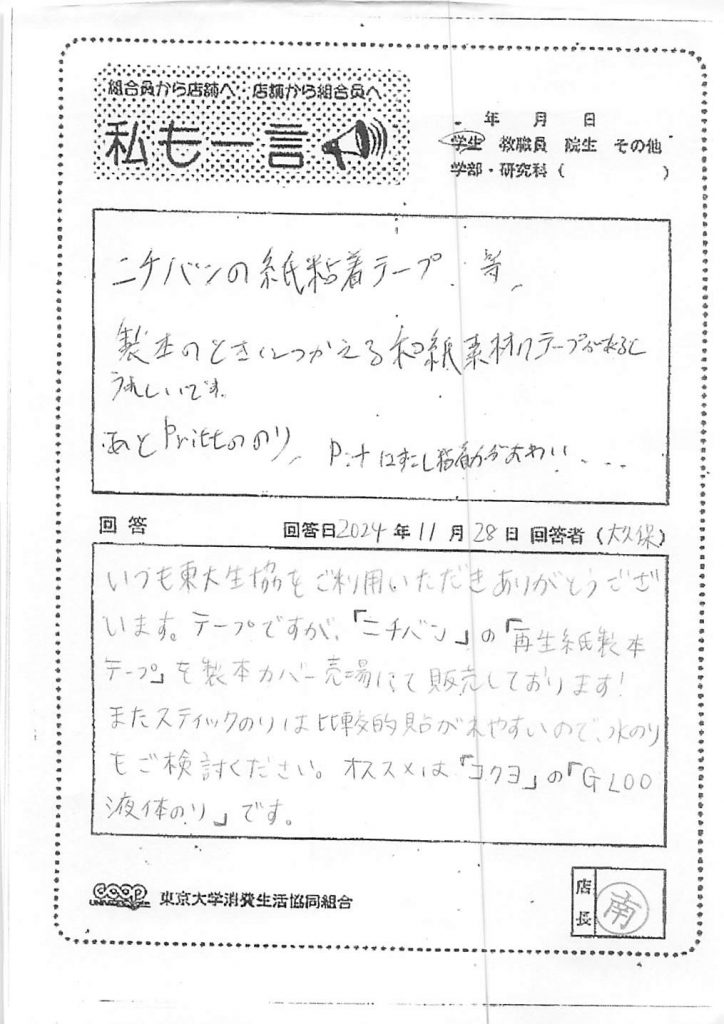 組合員から店舗へ 店舗から組合員へ
私も一言
年 月 日
学生 教職員 院生 その他
学部・研究科( )
ニチバンの紙粘着テープ 等、
製本のときにつかえる和紙素材のテープがあると
うれしいです。
あとPrittののり、 Pitはすこし粘着力がよわい...
回答 回答日2024年11月28日 回答者(大久保)
いつも東大生協をご利用いただきありがとうござ
います。テープですが、「ニチバン」の「再生紙製本
テープ」を製本カバー売場にて販売しております!
またスティックのりは比較的剥がれやすいので、水のり
もご検討ください。オススメは「コクヨ」の「GLOO
液体のり」です。
coop
東京大学消費生活協同組合
店長
南